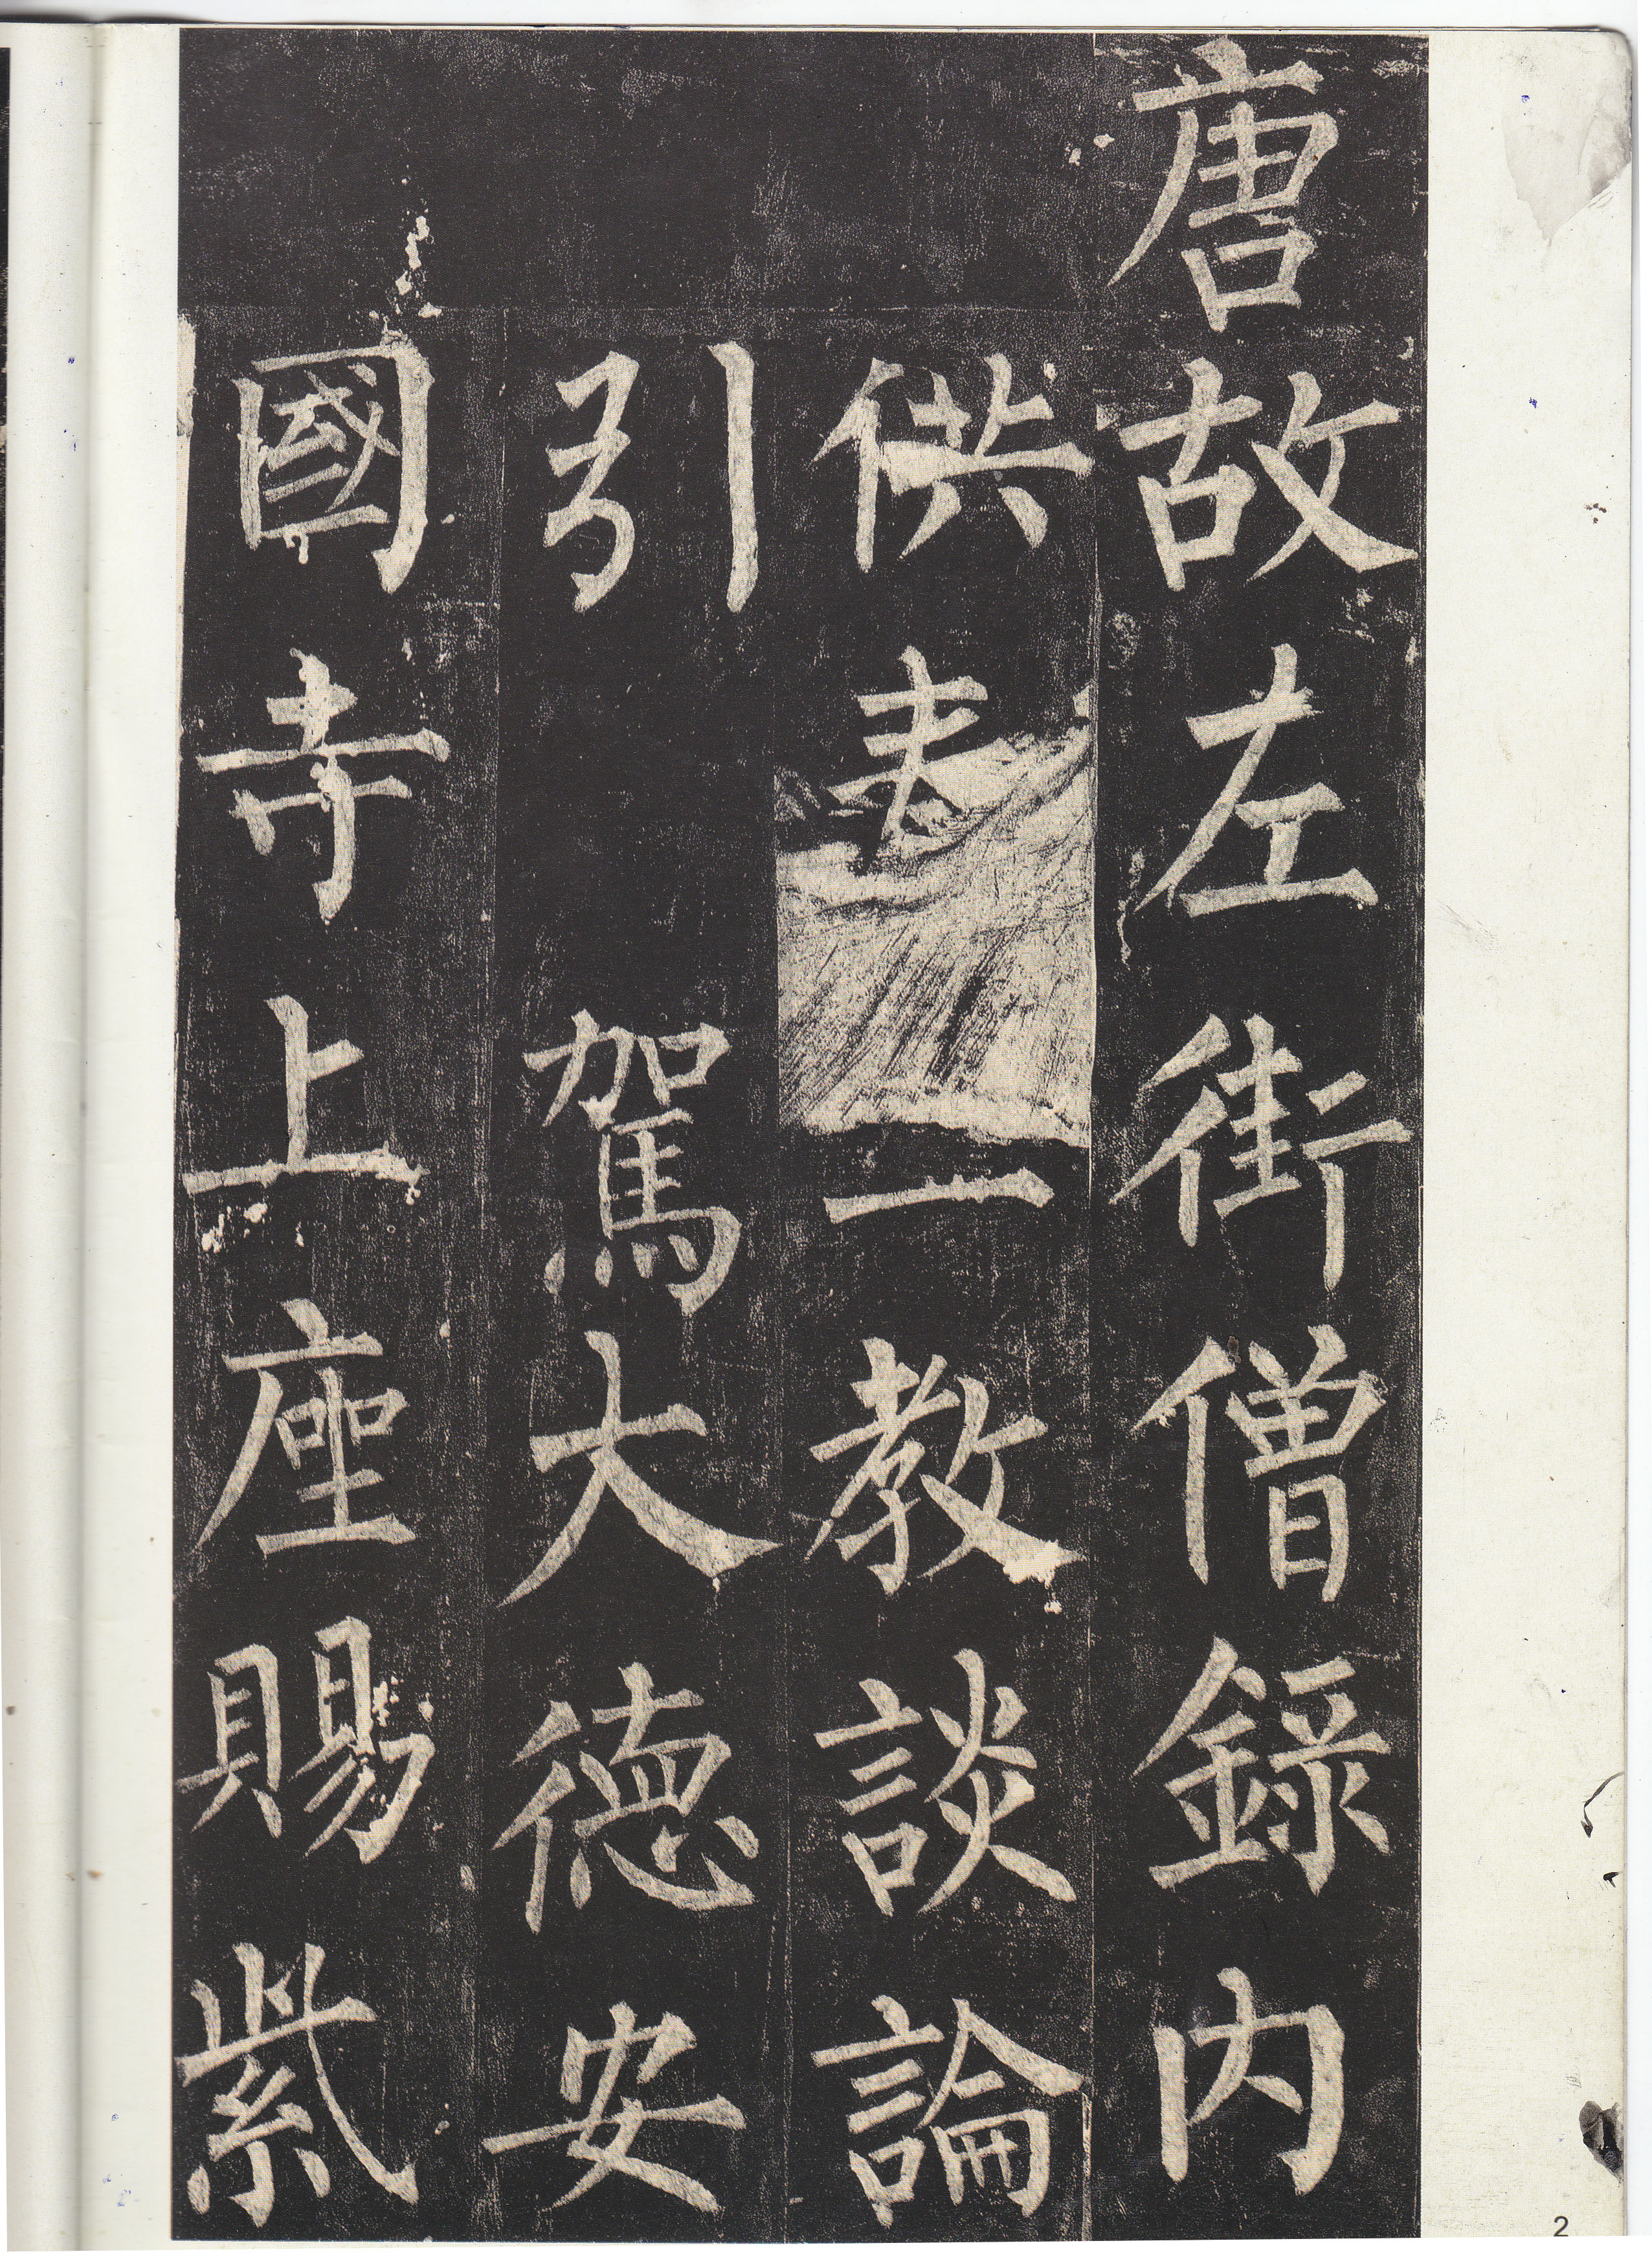 唐故左街僧錄内
供奉教談論
引駕大德安
國寺上座賜紫
2